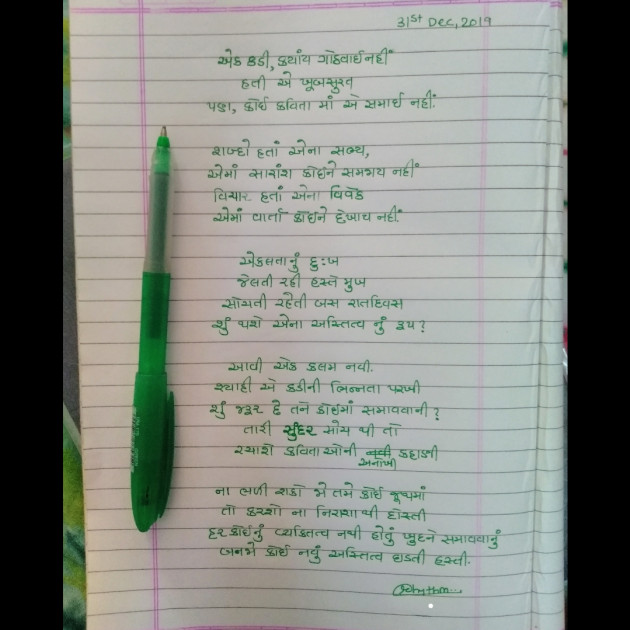 31st Dec, 2019
એક કડી, ક્યાંય ગોઠવાઈ નહીં
હતી એ ખૂબસુરત
પણ, કોઈ કવિતા માં એ સમાઈ નહીં.
શબ્દો હતાં એના સભ્ય,
એમાં સારાંશ કોઈને સમજાય નહીં
વિચાર હતાં એના વિવેક
એમાં વાર્તા કોઈને દેખાય નહીં.
એકલતાનું દુઃખ
જેલતી રહી હસ્તે મુખ
સોચતી રહેતી બસ રાતદિવસ
શું થશે એના અસ્તિત્વ નું રૂપ?
આવી એક કલમ નવી.
શ્યાહી એ કડીની ભિન્નતા પરખી
શું જરૂર છે તને કોઈમાં સમાવવાની?
તારી સુંદર સોચ થી તો
રચાશે કવિતાઓની કહાની
અનોખી
ના ભળી શકો જો તમે કોઈ જૂથમાં
તો કરશો ના નિરાશાથી દોસ્તી
હર કોઈનું વ્યક્તિત્વ નથી હોતું ખુદને સમાવવાનું
બનજો કોઈ નવું અસ્તિત્વ ઘડતી હસ્તી.